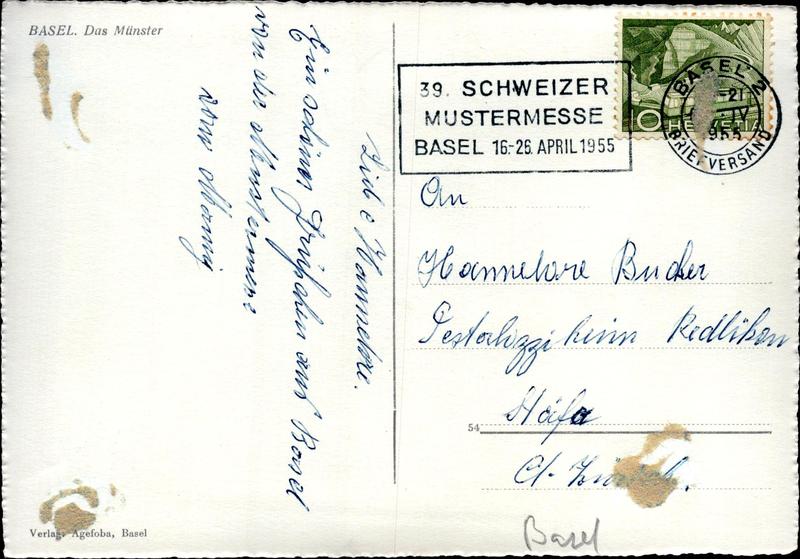 BASEL. Das Münster
39. SCHWEIZER
MUSTERMESSE
BASEL 16.-26. APRIL 1955
BASEL 2
-21
IV
1955
BRIEFVERSAND
10
HELVETIA
An
Hannelore Bucher
Pestalozziheim Redlikon
Stäfa
Ct. Zürich.
54
Lieb's Hannelore.
Ein schönes Grüsschen aus Basel
von der Mustermesse
vom
Verlag Agefoba, Basel
Basel